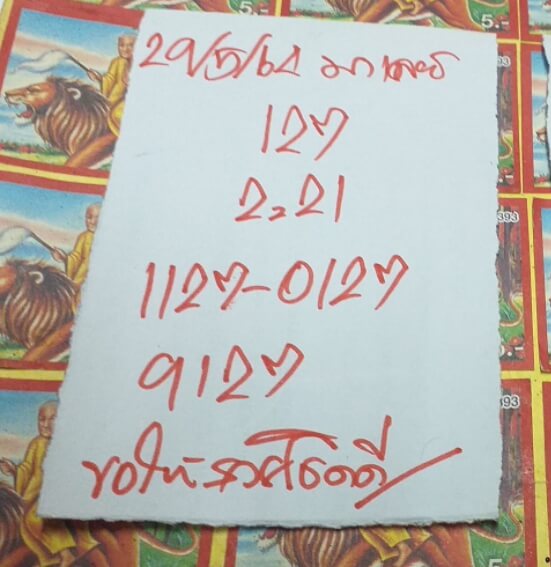 5.-
29/5/64 มาเลย์
127
2,21
393
1127-0127
5.-
9127
393
ขอให้รวยโชคดี